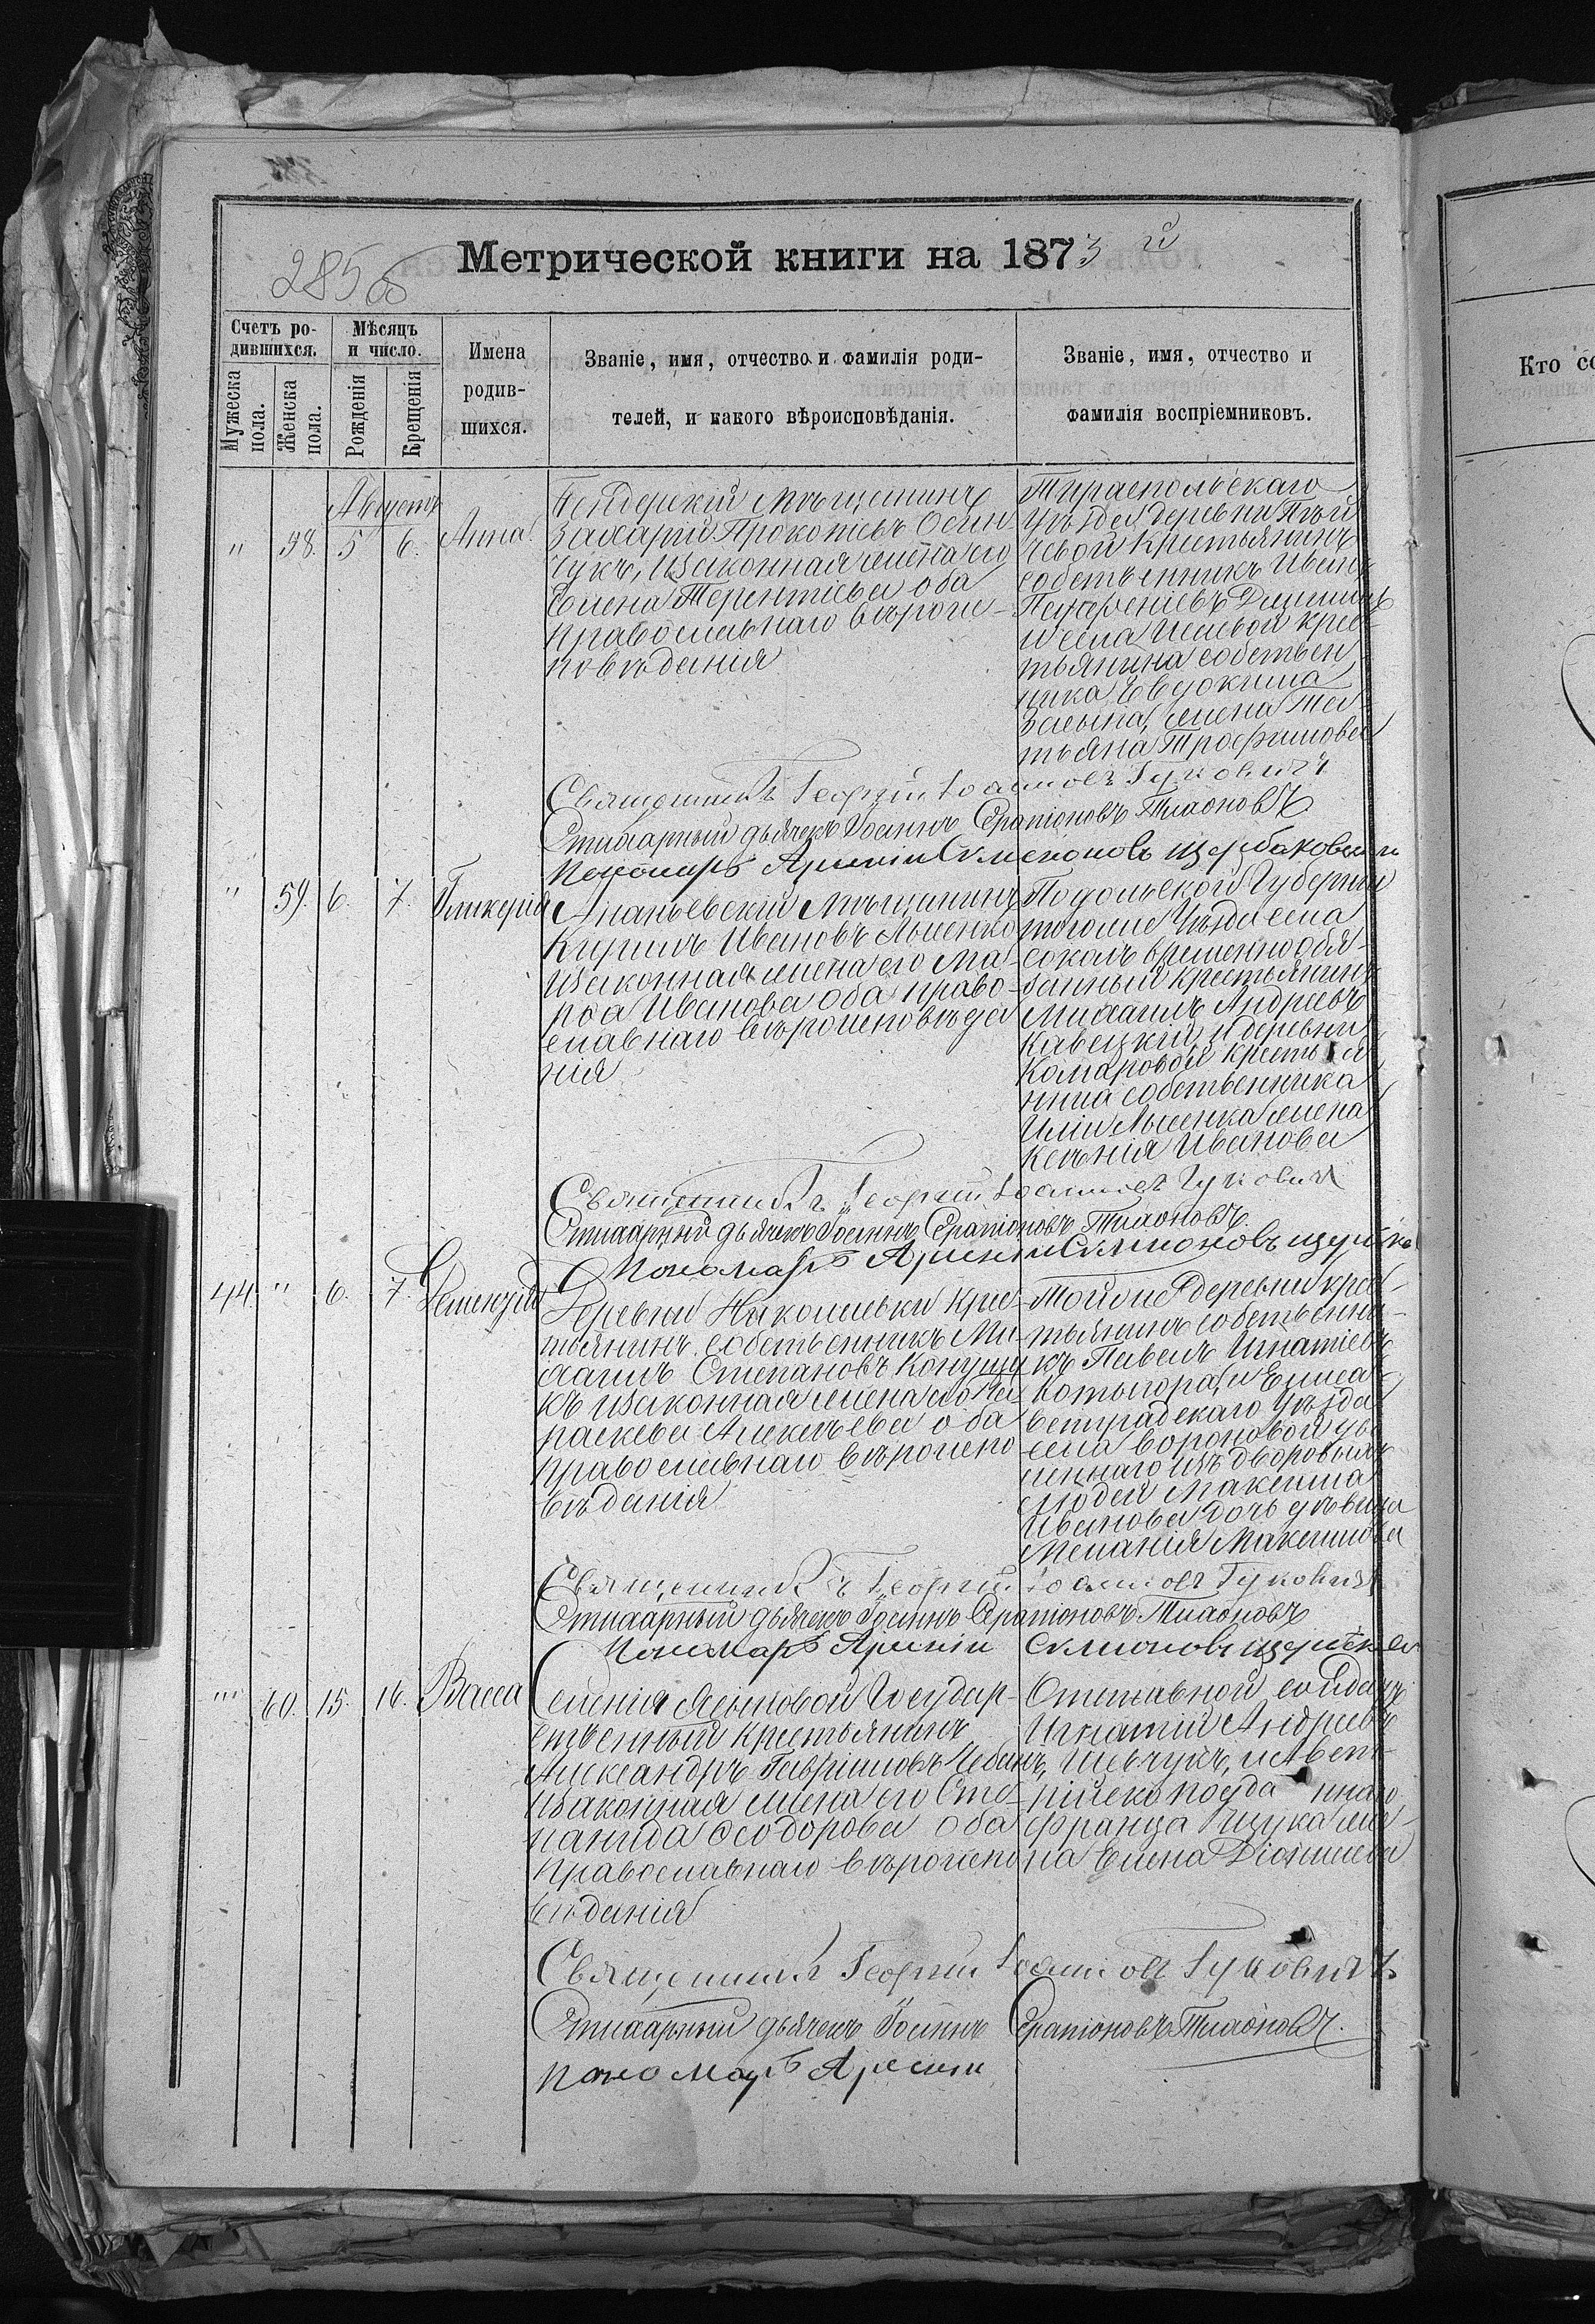 285 об
Метрической книги на 1873 й
Счетъ ро-
дившихся.
Мѣсяцъ
и число.
Мужеска
пола.
Женска
пола.
Рожденія
Крещенія
Имена
родив-
шихся.
Званіе, имя, отчество и фамилія роди-
телей, и какого вѣроисповѣданія.
Званіе, имя, отчество и
фамилія воспріемниковъ.
Кто со
Августъ
" 58. 5 6. Анна.
Бендерскій мѣщанинъ
Захарій Прокопіевъ Осин-
чукъ, и законная жена его
Елена Терентіева оба
православнаго вѣроис-
повѣданія
Тираспольскаго
уѣзда деревни
крестьянинъ
собственникъ Иванъ
Парфеніевъ
и села крес-
тьянина собствен
ника Евдокима
жена Та-
тьяна Трофимова
Священникъ Георгій Іоанновъ Гуковичъ
Стихарный дьячекъ Іоаннъ Серапіоновъ Тихоновъ
Пономарь Арсеній Симеоновъ Щербаковскій
" 59. 6. 7. Гликерія
Ананьевскій мѣщанинъ
Кирилъ Ивановъ Лысенко
и законная жена его Ма-
рѳа Иванова оба право-
славнаго вѣроисповѣда
нія
Подольской Губерніи
тогоже уѣзда села
Соколъ временно обя-
занный крестьянинъ
Михаилъ Андреевъ
Кавецкій, и деревни
Комаровой крестья
нина собственника
Иліи Лысенка жена
Ксенія Иванова
Священникъ Георгій Іоанновъ Гуковичъ
Стихарный дьячекъ Іоаннъ Серапіоновъ Тихоновъ
Пономарь Арсеній Симеоновъ Щербако
44. " 6. 7.
Деревни Николаевки крес-
тьянинъ собственникъ Ми-
хаилъ Степановъ
къ и законная жена его Па
раскева Алексѣева оба
православнаго вѣроиспо
вѣданія
Тойже деревни крес-
тьянинъ собственни-
къ Павелъ Игнатіевъ
Котыгора, и Елиса-
ветградскаго уѣзда
села Вороновой уво
леннаго изъ дворовыхъ
людей Максима
Иванова дочь дѣвица
Меланія Максимова
Священникъ Георгій Іоанновъ Гуковичъ
Стихарный дьячекъ Іоаннъ Серапіоновъ Тихоновъ
Пономарь Арсеній Симеоновъ Щербаков
" 60. 15. 16. Васса
Селенія Ясыновой Государ-
ственный крестьянинъ
Александръ Гавріиловъ Чебанъ,
и законная жена его Сте-
панида Ѳеодорова оба
православнаго вѣроиспо
вѣданія
Отставной солдатъ
Игнатій Андреевъ
Шевчукъ, и Авст-
рійско подданнаго
Франца Щука же-
на Елена Діонисіева
Священникъ Георгій Іоанновъ Гуковичъ
Стихарный дьячекъ Іоаннъ Серапіоновъ Тихоновъ.
Пономарь Арсеній